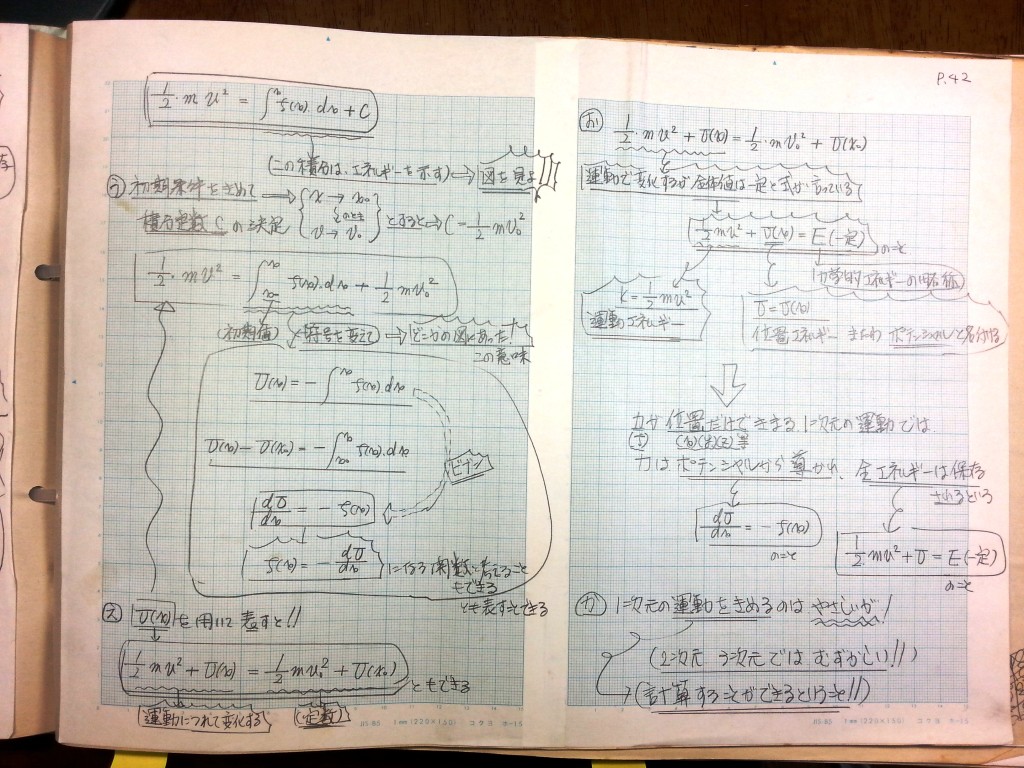 ½・mv² = ∫^x f(x)・dx + C
(この積分は、エネルギーを示す) → 図を見よ!!!
う 初期条件をきめて → { x → x₀ このとき v → v₀ } とすると → C = ½mv₀²
積分定数 C の決定
½・mv² = ∫_{x₀}^{x} f(x)・dx + ½mv₀²
(初期値) 符号を変えて → どこかの図にあった!
この意味
U(x) = −∫^x f(x)・dx
U(x) − U(x₀) = −∫_{x₀}^{x} f(x)・dx
dU/dx = −f(x)
f(x) = −dU/dx になる関数に考えること
もできる
とも表すことできる
え U(x) を用いて表すと!!
½mv² + U(x) = ½mv₀² + U(x₀) ともできる
運動につれて変化する (定数)
JIS-B5 1mm (220×150) コクヨ ホ-15
P.42
お ½・mv² + U(x) = ½・mv₀² + U(x₀)
運動で変化するが全体値は一定と式が言っている
½mv² + U(x) = E (一定) のこと
力学的エネルギーの略称)
K = ½mv²
運動エネルギー
U = U(x)
位置エネルギー またわ ポテンシャルと名付ける
力が位置だけできまる 1次元の運動では
(f) (x)(y)(z)等
力はポテンシャルから導かれ、全エネルギーは保存
されるという
dU/dx = −f(x)
のこと
½mv² + U = E (一定)
のこと
か 1次元の運動をきめるのは やさしいが!
(2次元 3次元では むずかしい!!)
(計算することができるということ!!)
JIS-B5 1mm (220×150) コクヨ ホ-15